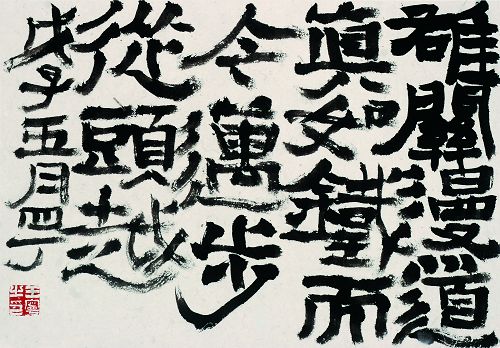 雄關漫道
真如鐵而
今邁步
從頭越
戊子五月